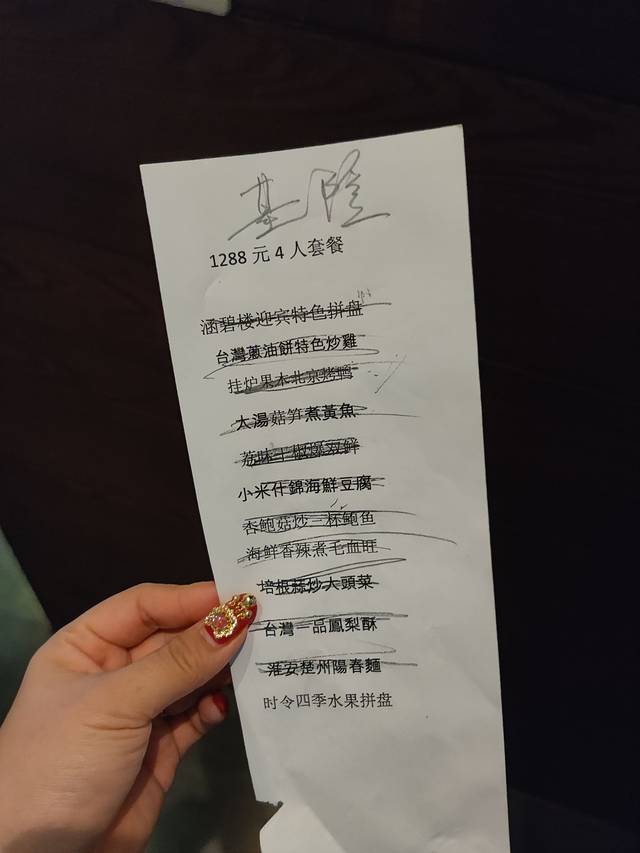 基隆
1288 元 4 人套餐
涵碧楼迎宾特色拼盘
台灣蔥油餅特色炒雞
挂炉果木北京烤鸭
大湯菇笋煮黃魚
小米什錦海鮮豆腐
杏鲍菇炒三杯鲍鱼
海鲜香辣煮毛血旺
培根蒜炒大頭菜
台灣一品鳳梨酥
淮安楚州陽春麵
时令四季水果拼盘